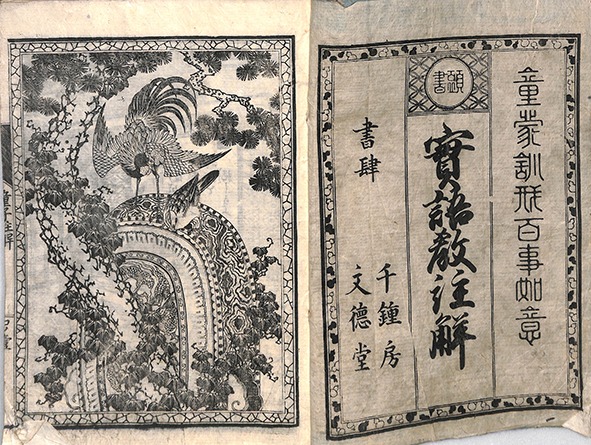 童蒙訓狀百事如意
頭書
實語教注解
書肆
千鍾房
文德堂